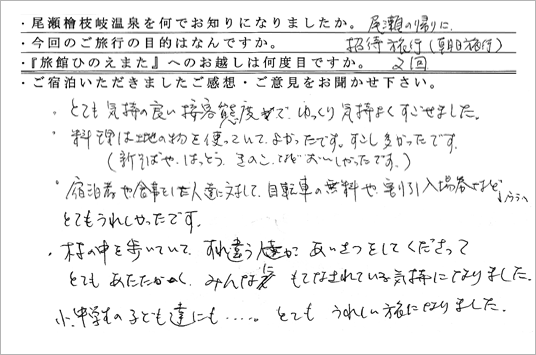 ・尾瀬檜枝岐温泉を何でお知りになりましたか。 尾瀬の帰りに
・今回のご旅行の目的はなんですか。 招待旅行(朝日旅行)
・『旅館ひのえまた』へのお越しは何度目ですか。 2回
・ご宿泊いただきましたご感想・ご意見をお聞かせ下さい。
・とても気持の良い接客態度で、ゆっくり気持よくすごせました。
・料理は土地の物を使っていて、よかったです。すこし多かったです。
(新そばや、はっとう、きのこ、とてもおいしかったです。)
・宿泊者や食事をした人達に対して、自転車の無料や、割引入場券など、
とてもうれしかったです。
・村の中を歩いていて、すれ違う人達が あいさつをしてくださって
とても あたたかく、みんなに もてなされている気持になりました。
小、中学生の子ども達にも‥‥‥。とても うれしい旅になりました。